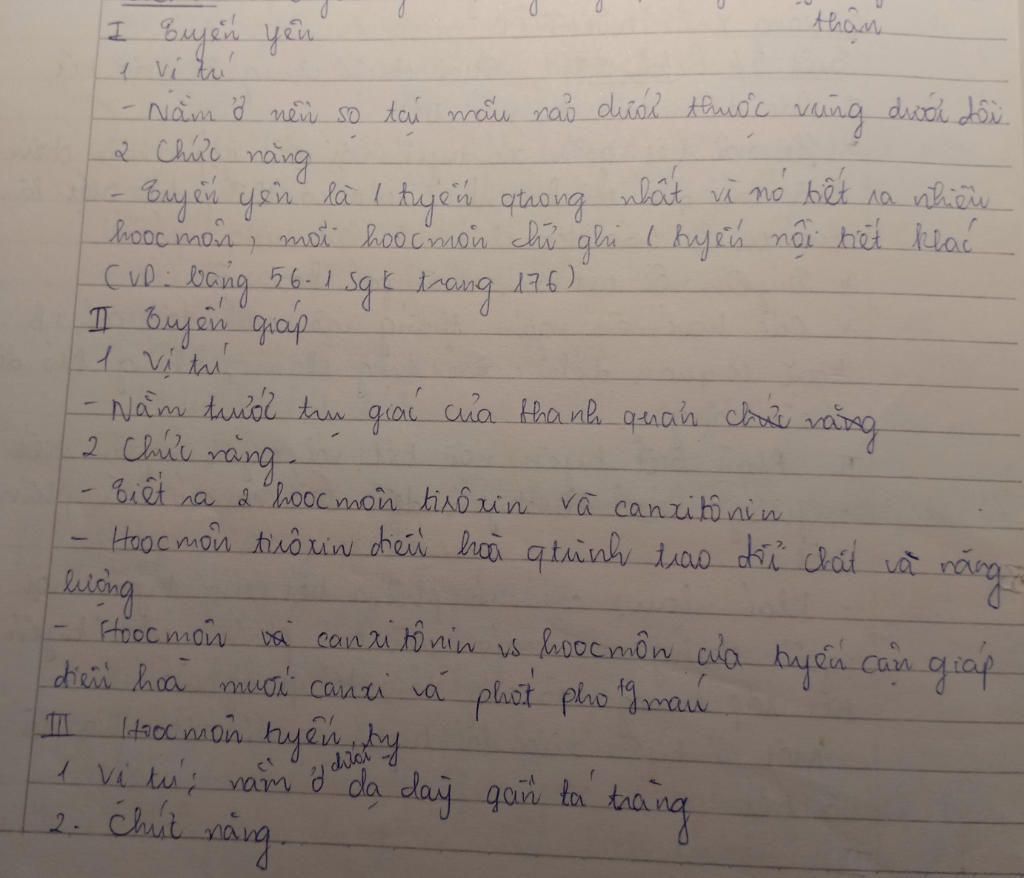 thận
I Tuyến yên
1 Vị trí
- Nằm ở nền sọ tại mấu não dưới thuộc vùng dưới đồi
2 Chức năng
- Tuyến yên là 1 tuyến qtrọng nhất vì nó tiết ra nhiều
hoocmôn, mỗi hoocmôn chỉ ghi 1 tuyến nội tiết khác
(VD: bảng 56.1 sgk trang 176)
II Tuyến giáp
1 Vị trí
- Nằm trước trụ giác của thanh quản chức năng
2 Chức năng.
- Tiết ra 2 hoocmôn tirôxin và canxitônin
- Hoocmôn tirôxin điều hoà qtrình trao đổi chất và năng
lượng
- Hoocmôn và canxitônin vs hoocmôn của tuyến cận giáp
điều hoà muối canxi và phốt pho tg máu
III Hoocmôn tuyến tụy
1 Vị trí; nằm ở dưới dạ dày gần tá tràng
2. Chức năng.